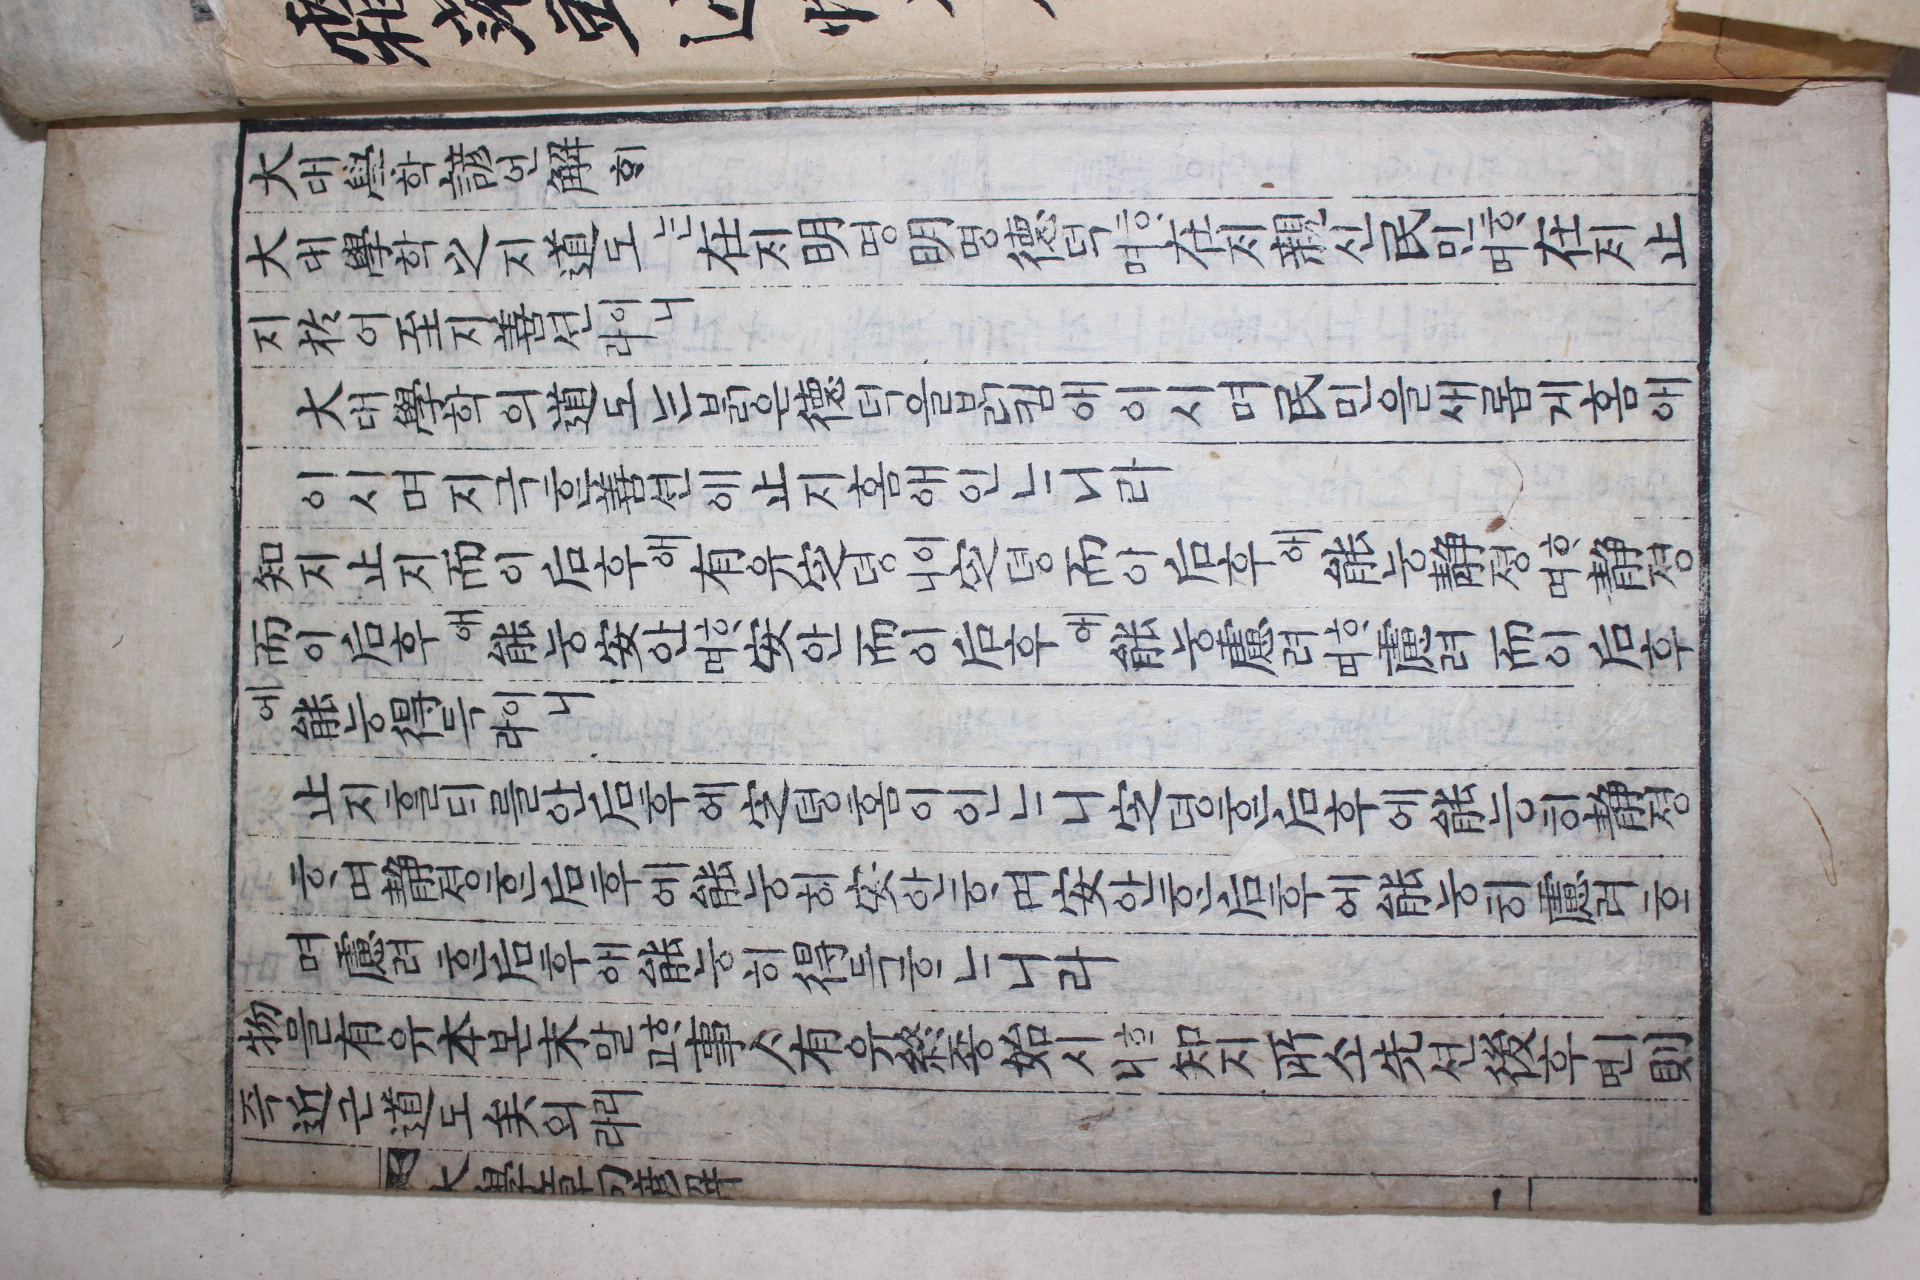 大대學학諺언解ᄒᆡ
大대學학之지道도ᄂᆞᆫ在ᄌᆡ明명明명德덕ᄒᆞ며在ᄌᆡ親신民민ᄒᆞ며在ᄌᆡ止
지於어至지善션이니라
大대學학의道도ᄂᆞᆫᄇᆞᆯ근德덕을ᄇᆞᆯ킴애이시며民민을새롭게홈애
이시며지극ᄒᆞᆫ善션에止지홈애인ᄂᆞ니라
知지止지而이后후에有유定뎡이니定뎡而이后후에能능靜졍ᄒᆞ며靜졍
而이后후에能능安안ᄒᆞ며安안而이后후에能능慮려ᄒᆞ며慮려而이后후
에能능得득이니라
止지홀ᄃᆡ를안后후에定뎡홈이인ᄂᆞ니定뎡ᄒᆞᆫ后후에能능히靜졍
ᄒᆞ며靜졍ᄒᆞᆫ后후에能능히安안ᄒᆞ며安안ᄒᆞᆫ后후에能능히慮려ᄒᆞ
며慮려ᄒᆞᆫ后후에能능히得득ᄒᆞᄂᆞ니라
物믈有유本본末말ᄒᆞ고事ᄉᆞ有유終죵始시ᄒᆞ니知지所소先션後후ㅣ면則
즉近근道도矣의리라
大學章句諺解 一